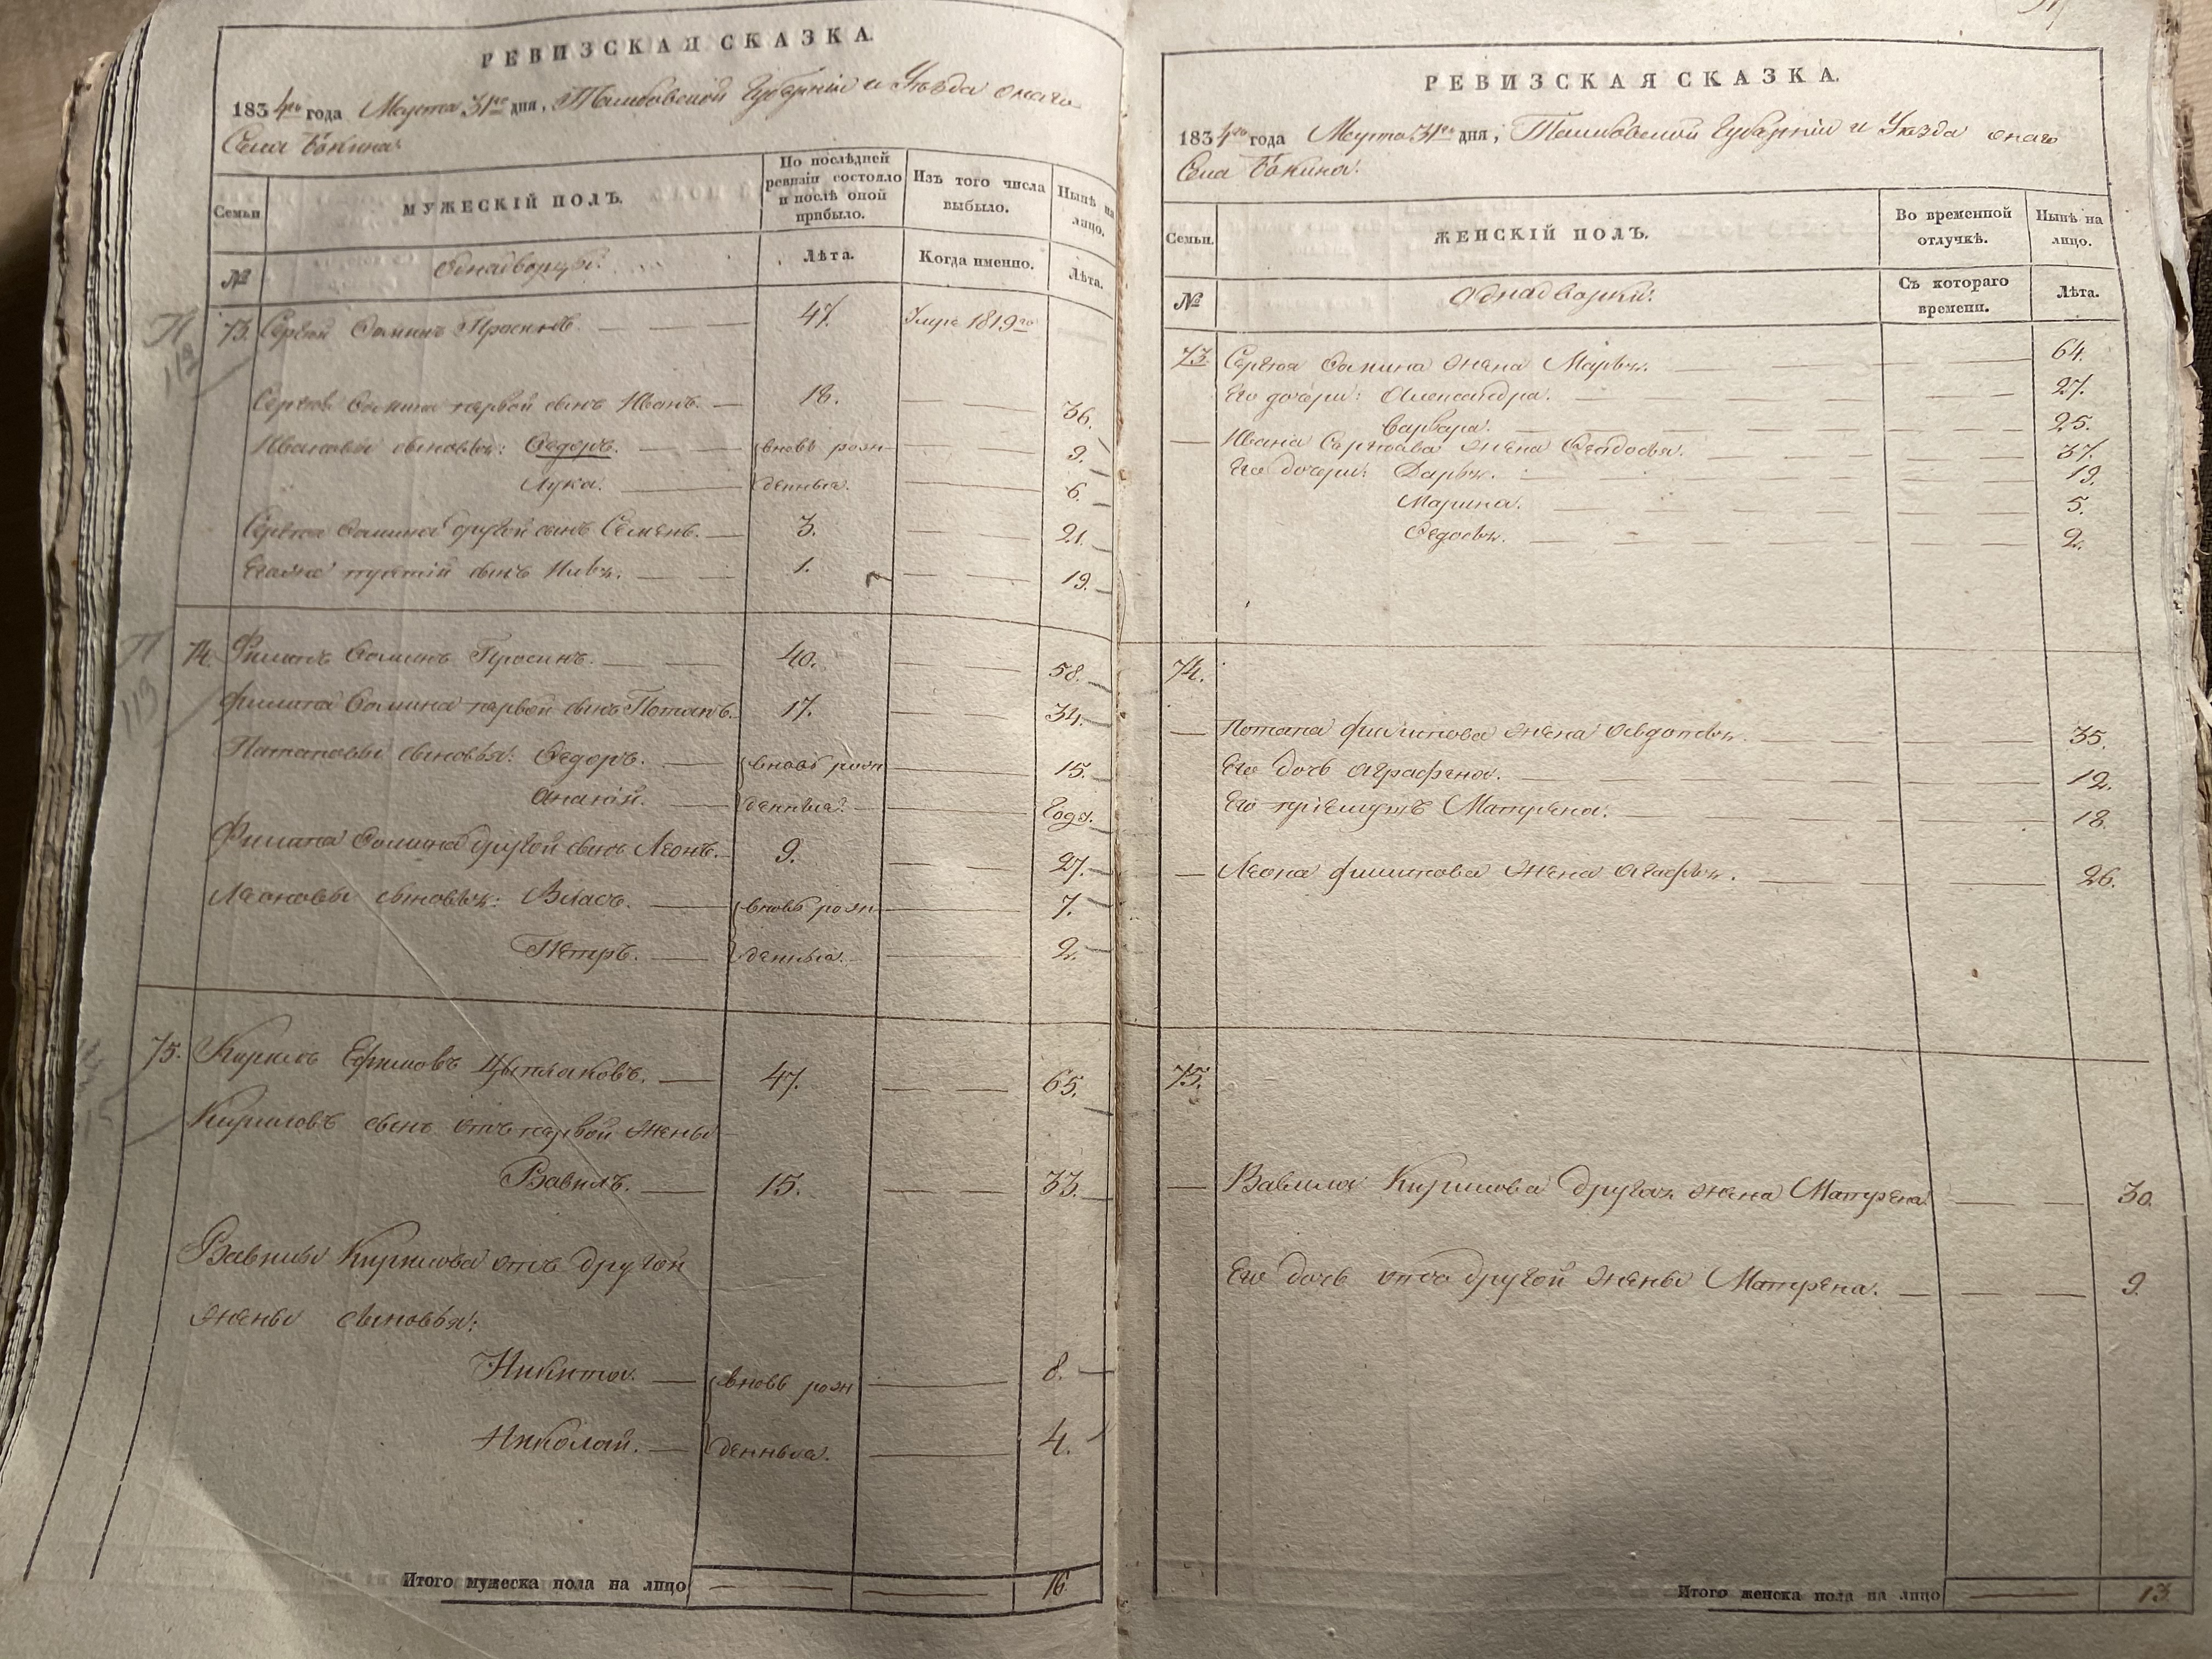 РЕВИЗСКАЯ СКАЗКА.
1834го года Марта 31го дня, Тамбовской Губерніи и Уѣзда онаго
Села Бокина
Семьи. МУЖЕСКІЙ ПОЛЪ. По послѣдней ревизіи состояло и послѣ оной прибыло. Изъ того числа выбыло. Нынѣ на лицо.
№ Однадворцы. Лѣта. Когда именно. Лѣта.
73. Сергей Фомин 47. Умре 1819го
112
Сергея Фомина первой сынъ Иванъ. 18. 36.
Ивановы сыновья: Федоръ. вновь рож 9.
Лука. денныя. 6.
Сергея Фомина другой сынъ Семенъ. 3. 21.
третій сынъ Илья. 1. 19.
74. Филипъ Фоминъ 40. 58.
113
Филипа Фомина первой сынъ Потапъ. 17. 34.
Потаповы сыновья: Федоръ. вновь рож 15.
Ананій. денныя. года.
Филипа Фомина другой сынъ Леонъ. 9. 27.
Леоновы сыновья: Власъ. вновь рож 7.
Петръ. денныя. 2.
75. Кирилъ Ефимовъ Цыплаковъ. 47. 65.
Кириловъ сынъ отъ первой жены
Вавилъ. 15. 33.
Вавилы Кирилова отъ другой
жены сыновья:
Никита. вновь рож 8.
Николай. денныя. 4.
Итого мужеска пола на лицо 16
РЕВИЗСКАЯ СКАЗКА.
1834го года Марта 31го дня, Тамбовской Губерніи и Уѣзда онаго
Села Бокина.
Семьи. ЖЕНСКІЙ ПОЛЪ. Во временной отлучкѣ. Нынѣ на лицо.
№ Однадворки. Съ котораго времени. Лѣта.
73. Сергея Фомина жена Марья. 64.
Его дочери: Александра. 27.
Варвара. 25.
Ивана Сергеева жена Феодосья. 37.
Его дочери: Дарья. 19.
Марина. 5.
Федосья. 2.
74.
Потапа Филипова жена Авдотья. 35.
Его дочь Аграфена. 12.
Его Матрена. 18.
Леона Филипова жена Агафья. 26.
75.
Вавилы Кирилова другая жена Матрена 30.
Его дочь отъ другой жены Матрена. 9.
Итого женска пола на лицо 13